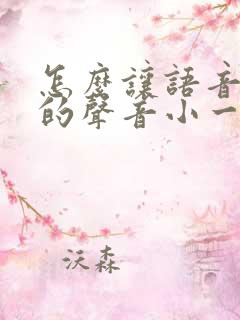 怎麼讓語音
的聲音小一
沃森